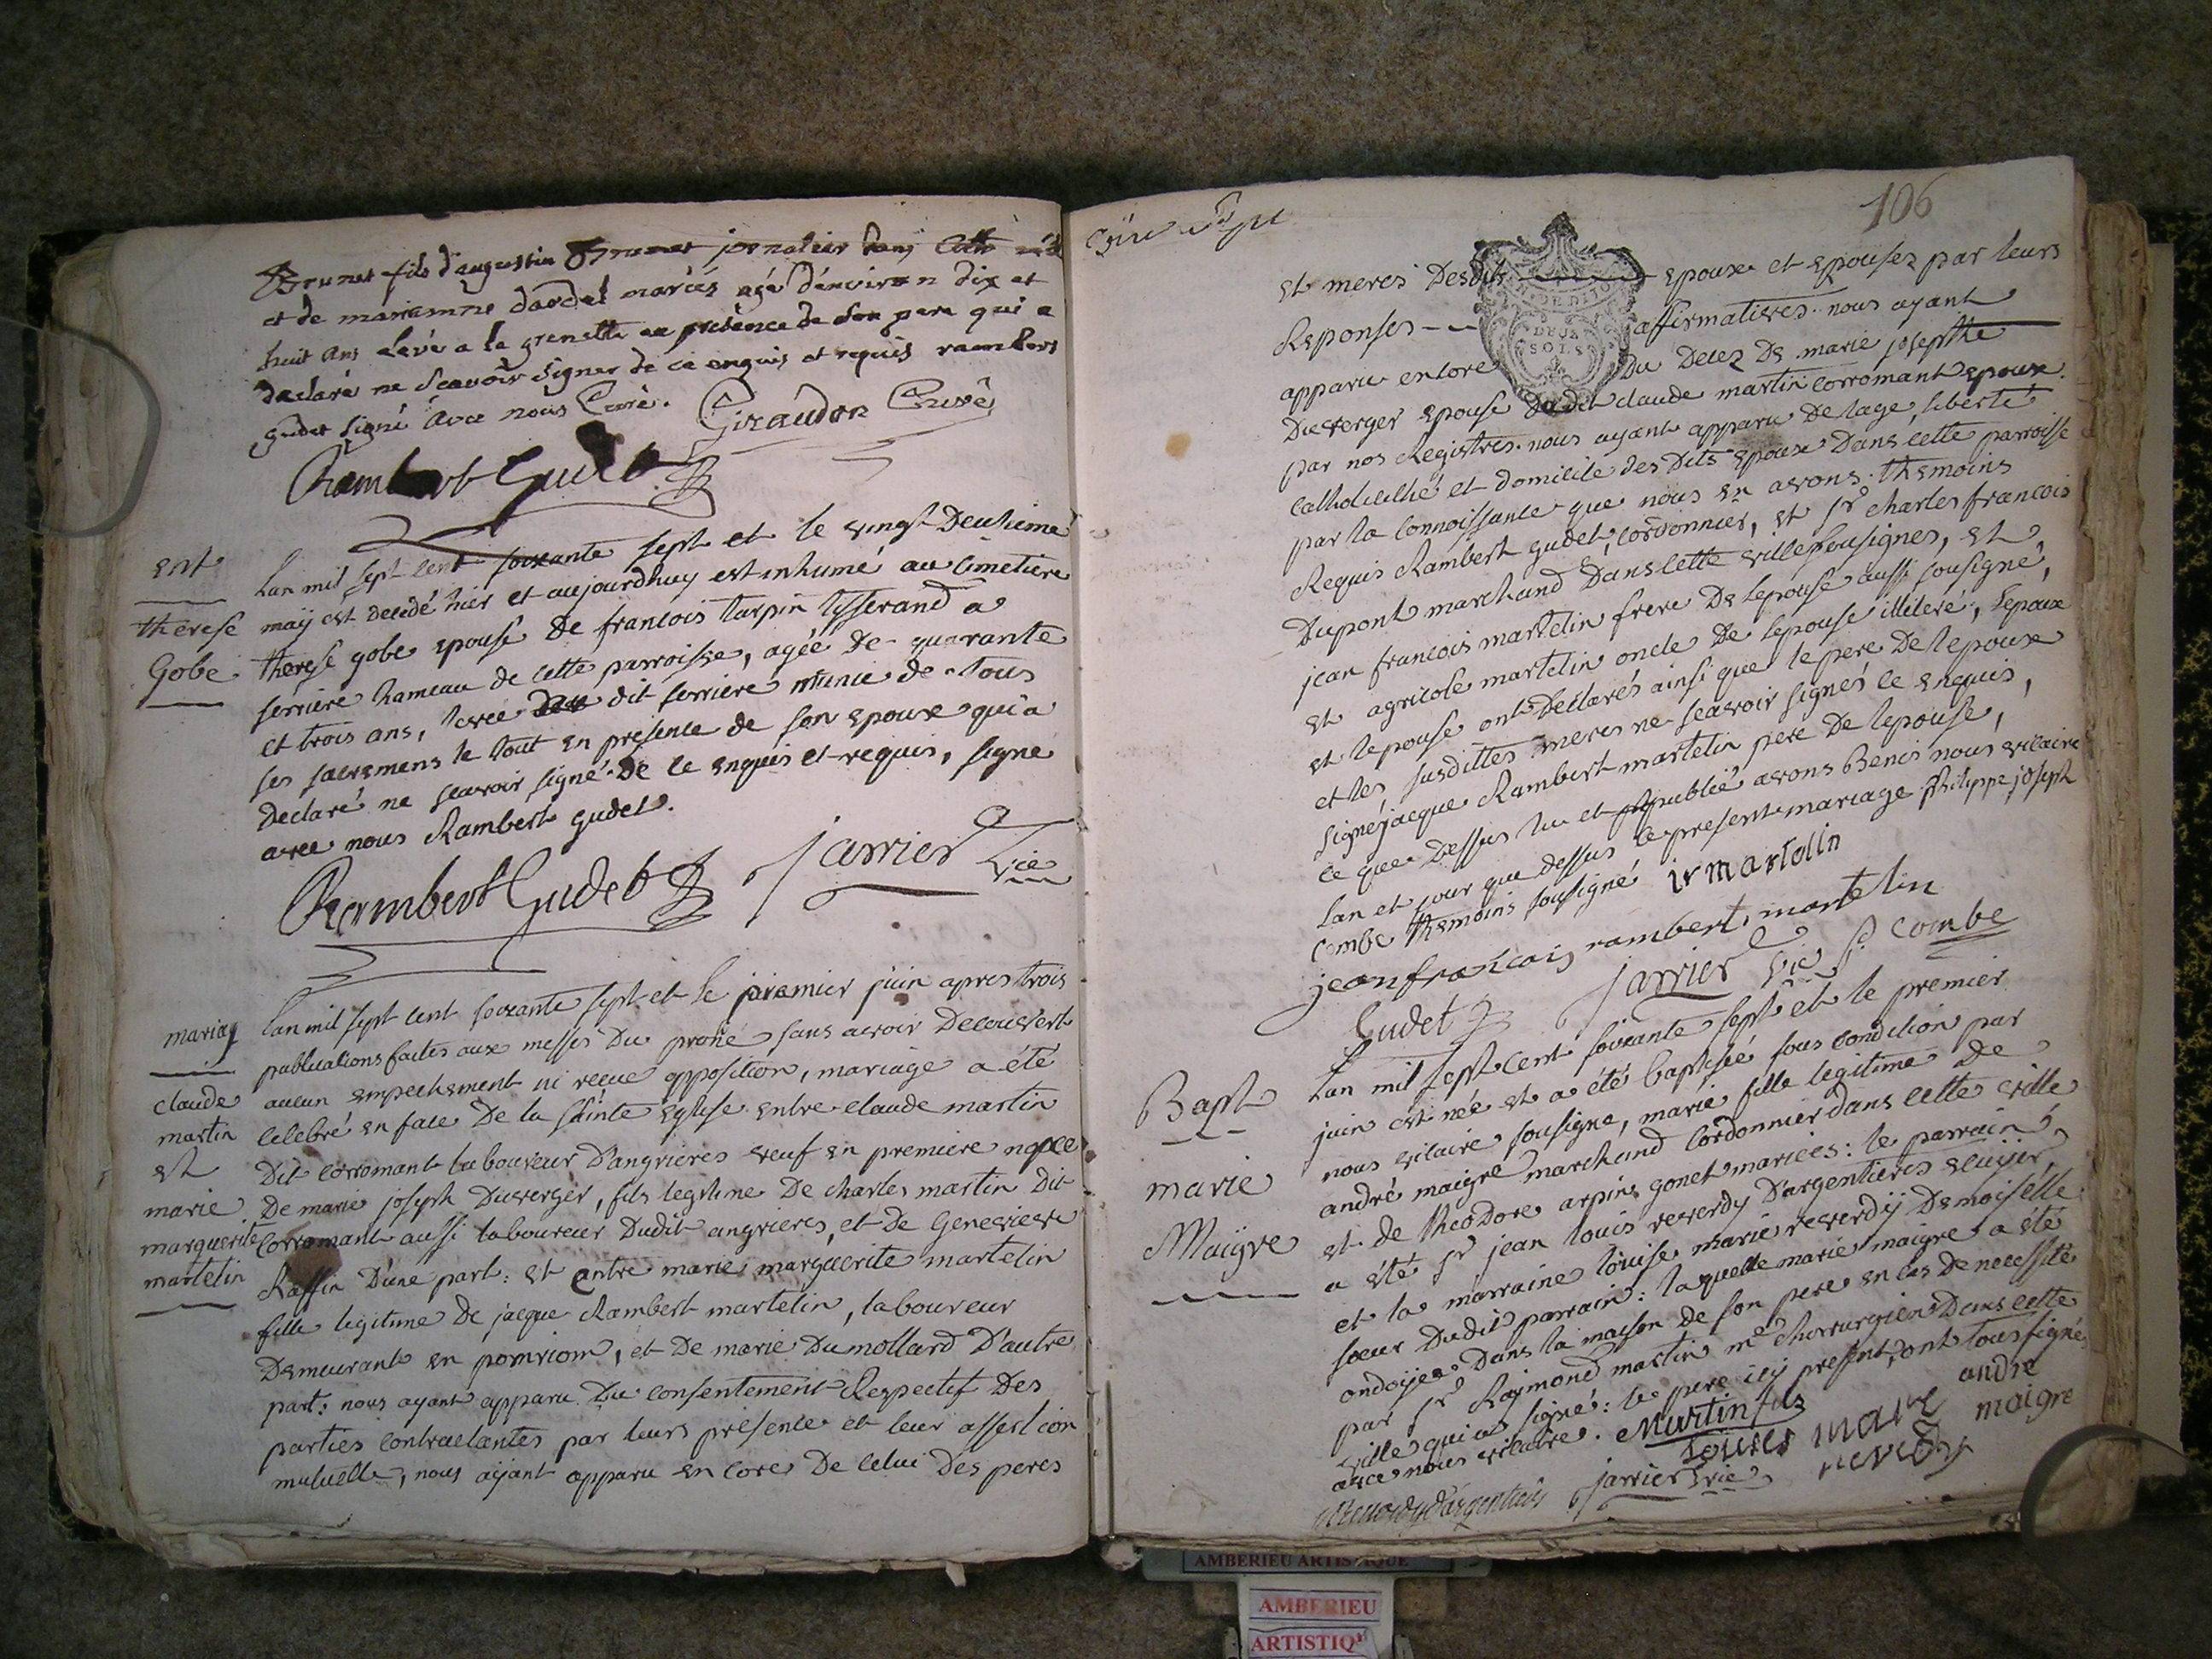 Brunet fils d'augustin Brunet jornalier dans cette
et de marianne dardel mariés agé d'environ dix et
huit ans levé a la grenette en présence de son pere qui a
declaré ne scavoir signer de ce enquis et requis rambert
gudet signé avec nous Curé. Giraudon Curé
Rambert Gudet
ent
therese
Gobe
Lan mil sept cent soixante sept et le vingt Deuxieme
maÿ est decedé hier et aujourdhuy est inhumé au Cimetiere
therese gobe epouse De francois turpin tisserand a
serriere hameau de cette parroisse, agée de quarante
et trois ans, levée dit serriere munie de tous
ses sacremens le tout en presence de son epoux qui a
Declaré ne scavoir signé De ce enquis et requis, signé
avec nous Rambert gudet.
Rambert Gudet Jarrier vic
mariag
claude
martin
et
marie
marguerite
martelin
Lan mil sept cent soixante sept et le premier juin apres trois
publications faites aux messes Du prone sans avoir Decouvert
aucun empechement ni reçue opposition, mariage a été
celebré en face De la sainte Eglise entre claude martin
Dit corromant laboureur D'angrieres veuf en premiere nopce
De marie joseph Duverger, fils legitime De charles martin Dit
Corromant aussi laboureur Dudit angrieres, et De Genevieve
Raffin D'une part: et entre marie marguerite martelin
fille legitime De jacque Rambert martelin, laboureur
Demeurant en pomriom, et De marie Dumollard D'autre
part: nous ayant apparu Du consentement Respectif Des
parties contractantes par leurs presence et leur affection
mutuelle, nous aÿant apparu encore De celui Des peres
106
DE DIJON
DEUX
SOLS
et meres Desdits epoux et epouses par leurs
Reponses affirmatives nous ayant
apparu encore Du Decez De marie josephte
Duverger epouse dudit claude martin corromant epoux
par nos Registres. nous ayant apparu De lage, liberté
Catholicilité et domicile des Dits epoux Dans cette parroisse
par la connoissance que nous en avons. themoins
Requis Rambert gudet, cordonnier, et sr charles francois
Dupont marchand Dans cette ville sousignes, et
jean francois martelin frere De lepouse aussi sousigné,
et agricole martelin oncle De lepouse illiteré, lepoux
et lepouse ont Declarés ainsi que le pere De lepoux
et les susdittes meres ne scavoir signés ce enquis,
signé jacque Rambert martelin pere De lepouse,
ce que Dessus lu et publié avons Benis nous vicaire
Lan et jour que dessus le present mariage philippe joseph
combe themoins sousigné ir martelin
jean francois rambert martelin
Gudet Jarrier vic combe
Bapt
marie
Maigre
Lan mil sept cent soixante sept et le premier
juin est née et a été baptisée sous condition par
nous vicaire sousigne, marie fille legitime De
andré maigre marchand cordonnier dans cette ville
et de theodore arpin gonet mariées: le parrain
a été sr jean louis reverdy D'argentieres ecuyer
et la marraine louise marie reverdÿ Demoiselle
soeur Dudit parrain: laquelle marie maigre a été
ondoyée Dans la maison de son pere en cas De necessité
par sr Raymond martin me chirurgien Dans cette
ville qui a signé: le pere icy present, ont tous signés
avec nous vicaire. Martin fils andre
maigre
jarrier vic